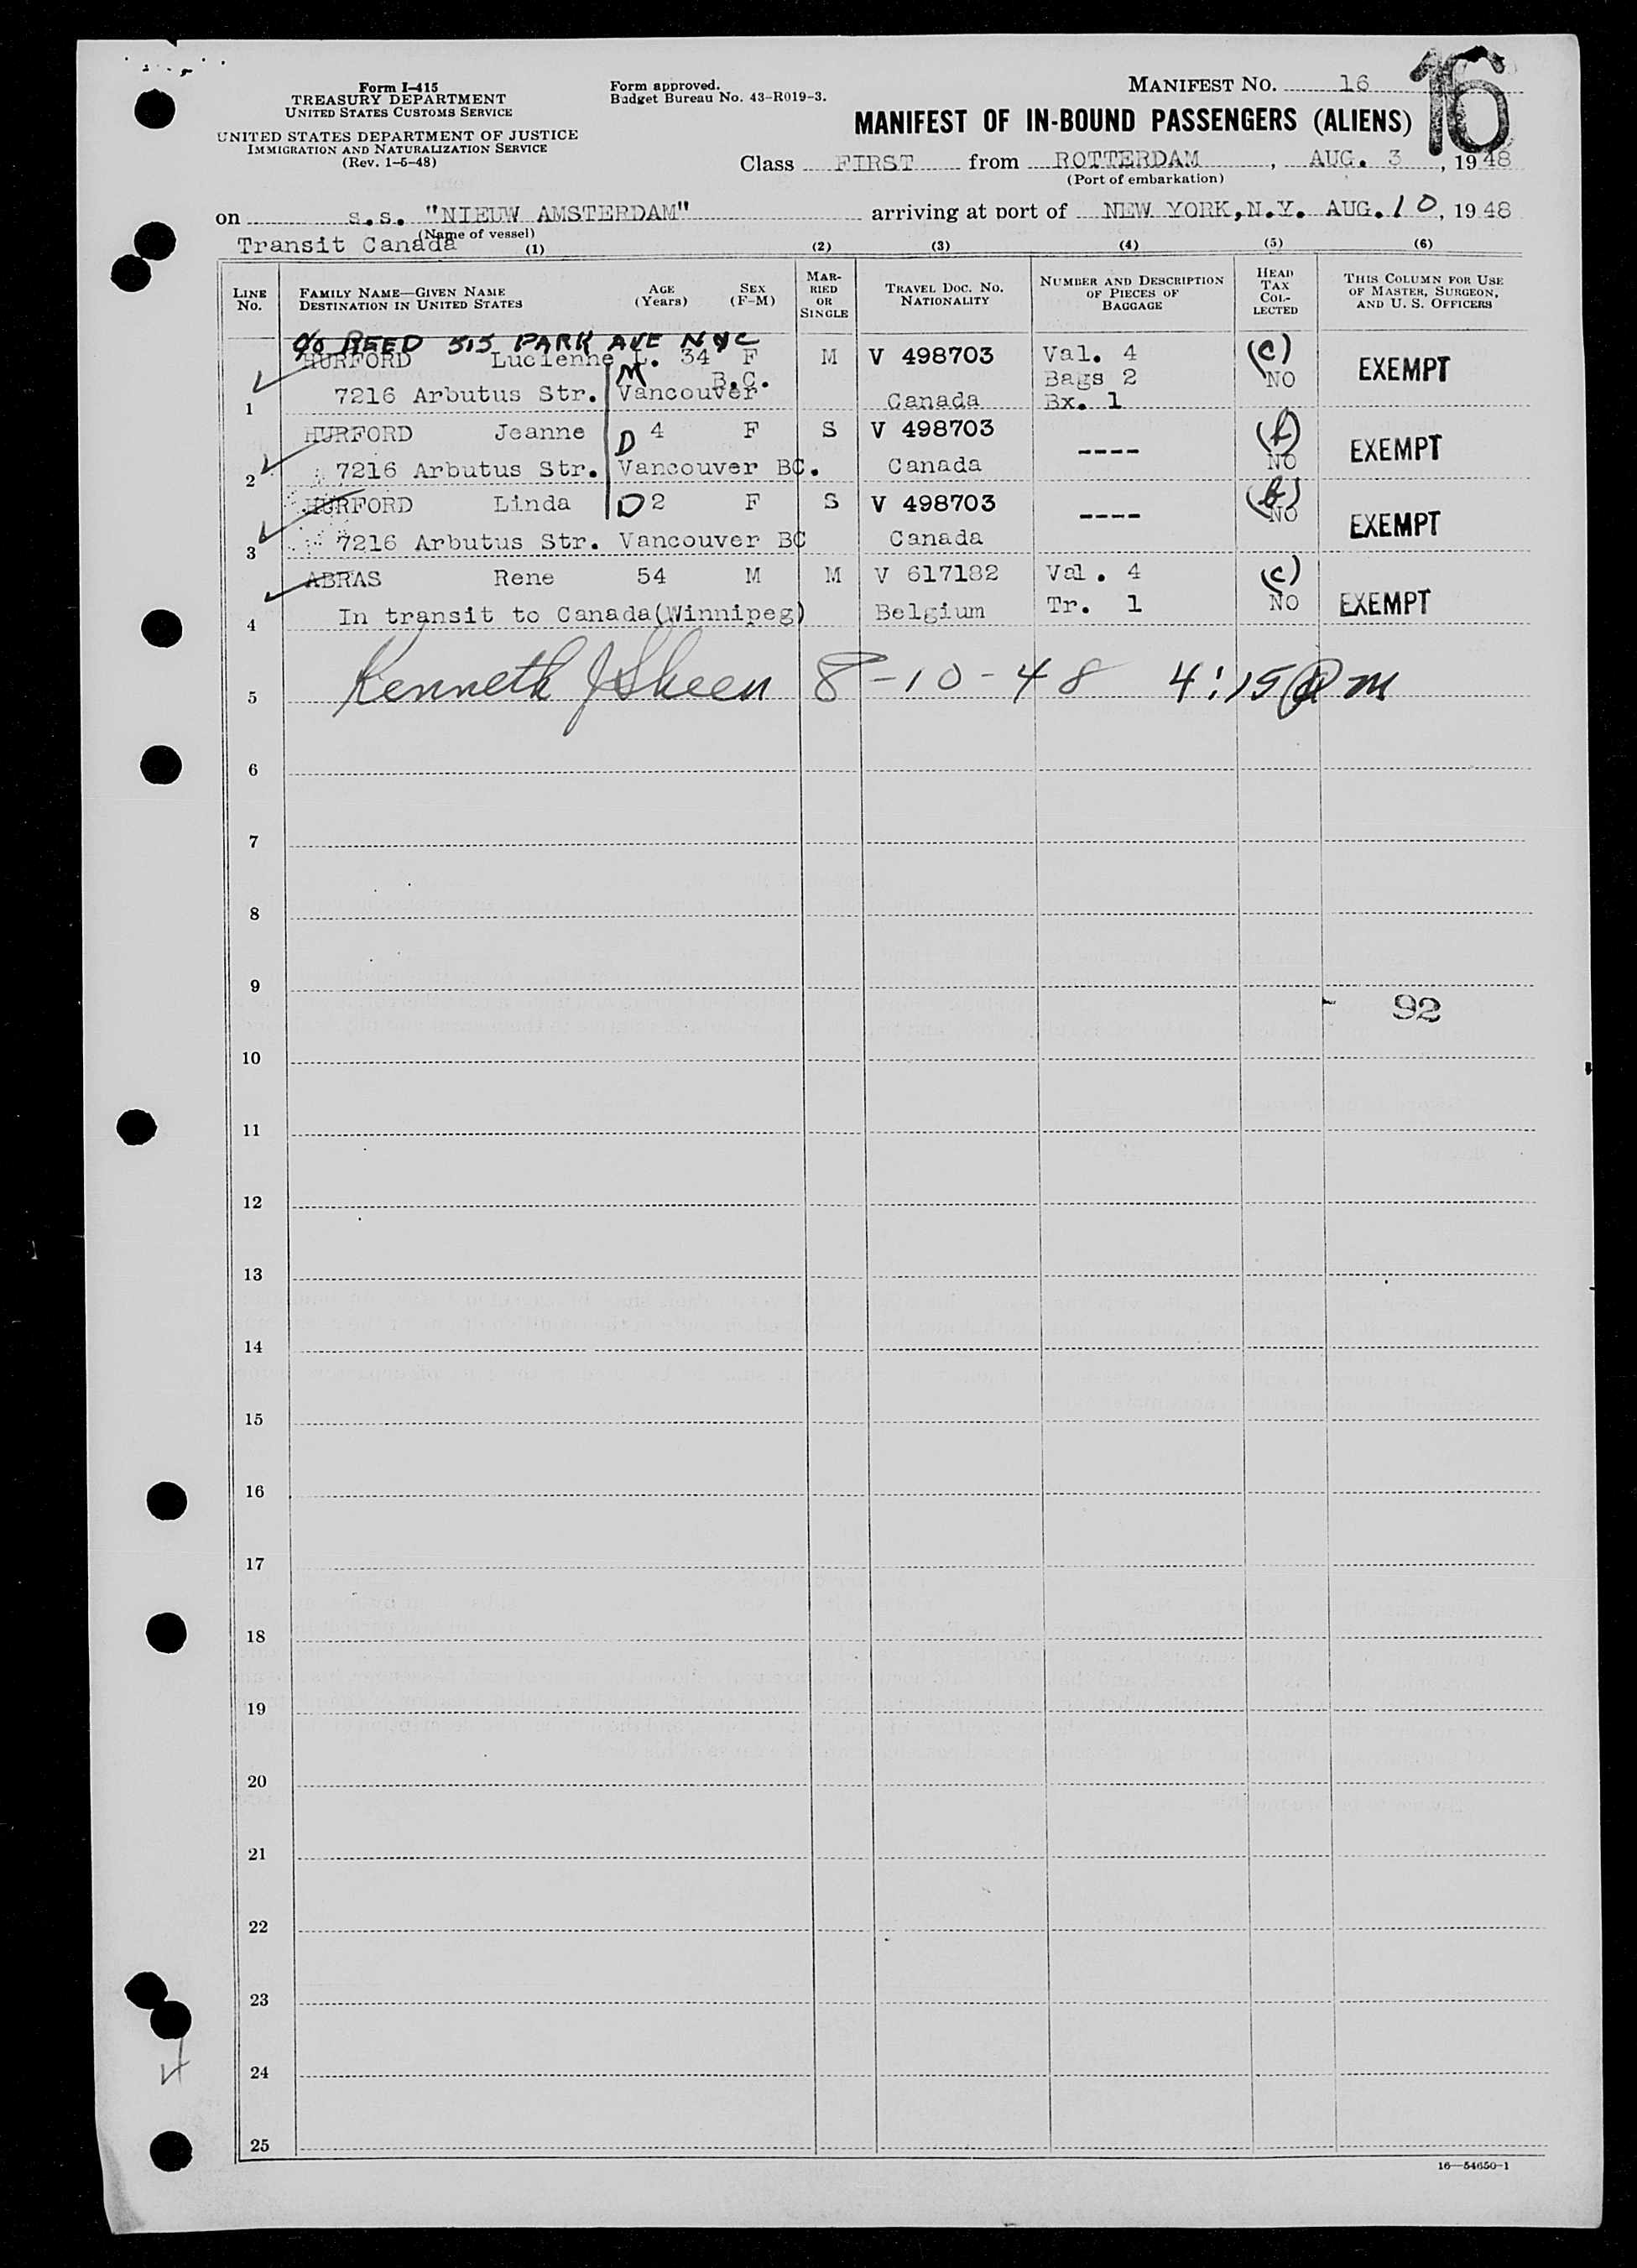 Form I-415
TREASURY DEPARTMENT
UNITED STATES CUSTOMS SERVICE
UNITED STATES DEPARTMENT OF JUSTICE
IMMIGRATION AND NATURALIZATION SERVICE
(Rev. 1-5-48)
Form approved.
Budget Bureau No. 43-R019-3.
MANIFEST NO. 16
16
MANIFEST OF IN-BOUND PASSENGERS (ALIENS)
Class FIRST from ROTTERDAM, AUG. 3, 1948
(Port of embarkation)
on s.s. "NIEUW AMSTERDAM" arriving at port of NEW YORK, N.Y. AUG. 10, 1948
(Name of vessel)
Transit Canada
(1) (2) (3) (4) (5) (6)
LINE NO. FAMILY NAME—GIVEN NAME DESTINATION IN UNITED STATES AGE (Years) SEX (F-M) MARRIED OR SINGLE TRAVEL DOC. NO. NATIONALITY NUMBER AND DESCRIPTION OF PIECES OF BAGGAGE HEAD TAX COLLECTED THIS COLUMN FOR USE OF MASTER, SURGEON, AND U. S. OFFICERS
c/o REED 515 PARK AVE NYC
HURFORD Lucienne L. 34 F M V 498703 Val. 4 (c) EXEMPT
M B.C. Bags 2 NO
1 7216 Arbutus Str. Vancouver Canada Bx. 1
HURFORD Jeanne D 4 F S V 498703 ---- (b) EXEMPT
2 7216 Arbutus Str. Vancouver BC. Canada NO
HURFORD Linda D 2 F S V 498703 ---- (b) NO EXEMPT
3 7216 Arbutus Str. Vancouver BC Canada
ABRAS Rene 54 M M V 617182 Val. 4 (c) EXEMPT
4 In transit to Canada(Winnipeg) Belgium Tr. 1 NO
5 Kenneth J Skeen 8-10-48 4:15 pm
6
7
8
9
92
10
11
12
13
14
15
16
17
18
19
20
21
22
23
24
25
16—54650-1